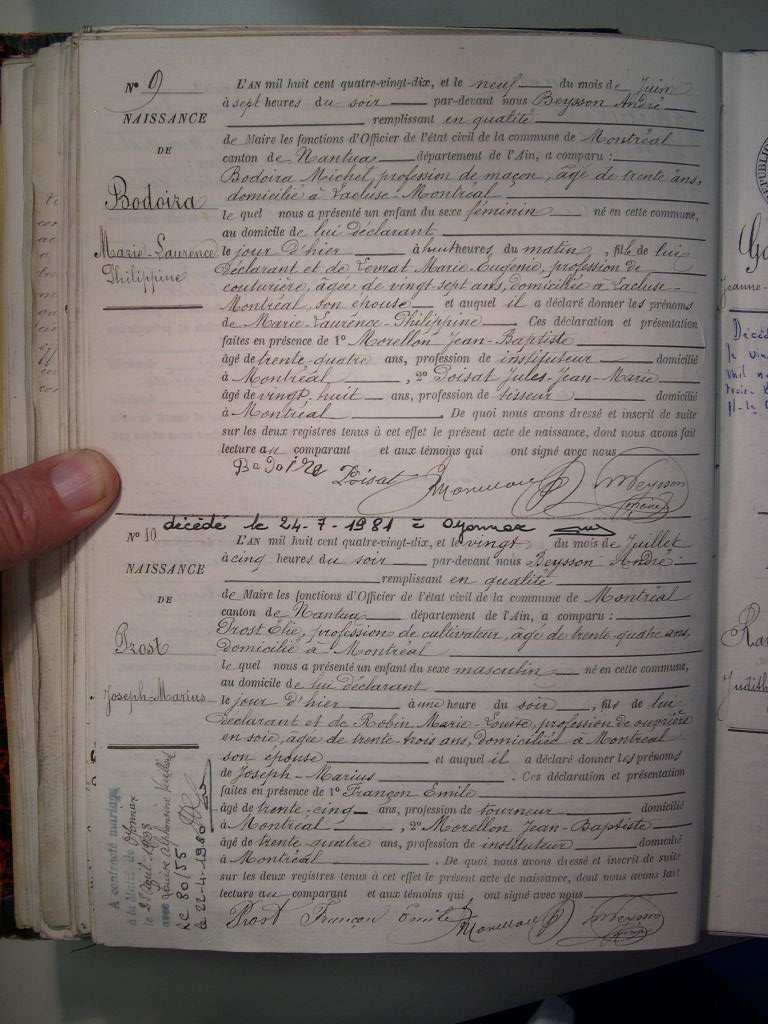 N° 9
NAISSANCE
DE
Bodoira
Marie-Laurence
Philippine
L'AN mil huit cent quatre-vingt-dix, et le neuf du mois de Juin
à sept heures du soir par-devant nous Beysson André
remplissant en qualité
de Maire les fonctions d'Officier de l'état civil de la commune de Montréal
canton de Nantua département de l'Ain, a comparu :
Bodoira Michel, profession de maçon, âgé de trente ans,
domicilié à Lacluse-Montréal
le quel nous a présenté un enfant du sexe féminin né en cette commune,
au domicile de lui déclarant
le jour d'hier à huit heures, du matin, fille de lui
déclarant et de Levrat Marie Eugénie, profession de
couturière, âgée de vingt sept ans, domiciliée à Lacluse-
Montréal, son épouse et auquel il a déclaré donner les prénoms
de Marie-Laurence-Philippine. Ces déclaration et présentation
faites en présence de 1° Morellon Jean-Baptiste
âgé de trente-quatre ans, profession de instituteur domicilié
à Montréal, 2° Poisat Jules-Jean-Marie
âgé de vingt-huit ans, profession de tisseur domicilié
à Montréal. De quoi nous avons dressé et inscrit de suite
sur les deux registres tenus à cet effet le présent acte de naissance, dont nous avons fait
lecture au comparant et aux témoins qui ont signé avec nous
Poisat Morellon Beysson
décédé le 24-7-1981 à Oyonnax
N° 10
NAISSANCE
DE
Prost
Joseph-Marius
L'AN mil huit cent quatre-vingt-dix, et le vingt du mois de Juillet
à cinq heures du soir par-devant nous Beysson André
remplissant en qualité
de Maire les fonctions d'Officier de l'état civil de la commune de Montréal
canton de Nantua département de l'Ain, a comparu :
Prost Élie, profession de cultivateur, âgé de trente-quatre ans,
domicilié à Montréal
le quel nous a présenté un enfant du sexe masculin né en cette commune,
au domicile de lui déclarant
le jour d'hier à une heure du soir, fils de lui
déclarant et de Robin Marie-Louise, profession de ouvrière
en soie, âgée de trente-trois ans, domiciliée à Montréal
son épouse et auquel il a déclaré donner les prénoms
de Joseph-Marius. Ces déclaration et présentation
faites en présence de 1° Françon Emile
âgé de trente-cinq ans, profession de tourneur domicilié
à Montréal, 2° Morellon Jean-Baptiste
âgé de trente-quatre ans, profession de instituteur domicilié
à Montréal. De quoi nous avons dressé et inscrit de suite
sur les deux registres tenus à cet effet le présent acte de naissance, dont nous avons fait
lecture au comparant et aux témoins qui ont signé avec nous
Prost Françon Emile Morellon Beysson
A contracté mariage
à la Mairie de Oyonnax
avec
RC 80/55
le 22-4-1980